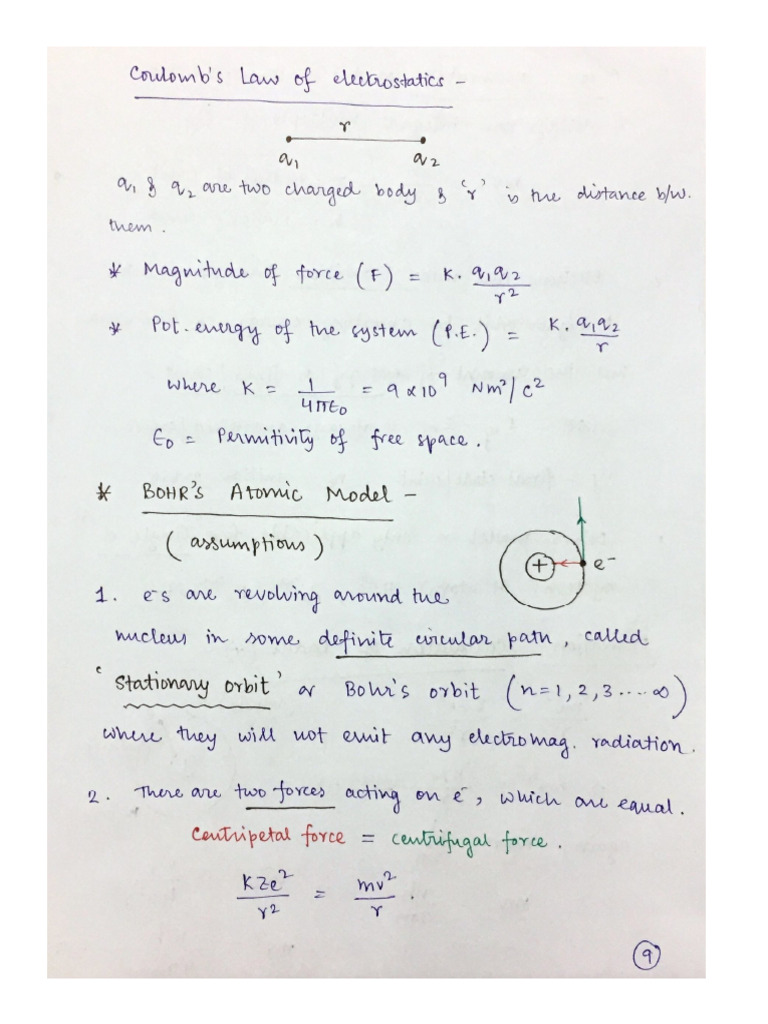 Coulomb's Law of electrostatics -
r
q₁ q₂
q₁ & q₂ are two charged body & 'r' is the distance b/w.
them.
* Magnitude of force (F) = K. q₁q₂/r²
* Pot. energy of the system (P.E.) = K. q₁q₂/r
where K = 1/4πε₀ = 9 x 10⁹ Nm²/C²
ε₀ = Permitivity of free space.
* BOHR's Atomic Model -
(assumptions)
+ e⁻
1. e⁻s are revolving around the
nucleus in some definite circular path, called
'Stationary orbit' or Bohr's orbit (n=1, 2, 3 .... ∞)
where they will not emit any electromag. radiation.
2. There are two forces acting on e⁻, which are equal.
Centripetal force = centrifugal force.
KZe²/r² = mv²/r.
9